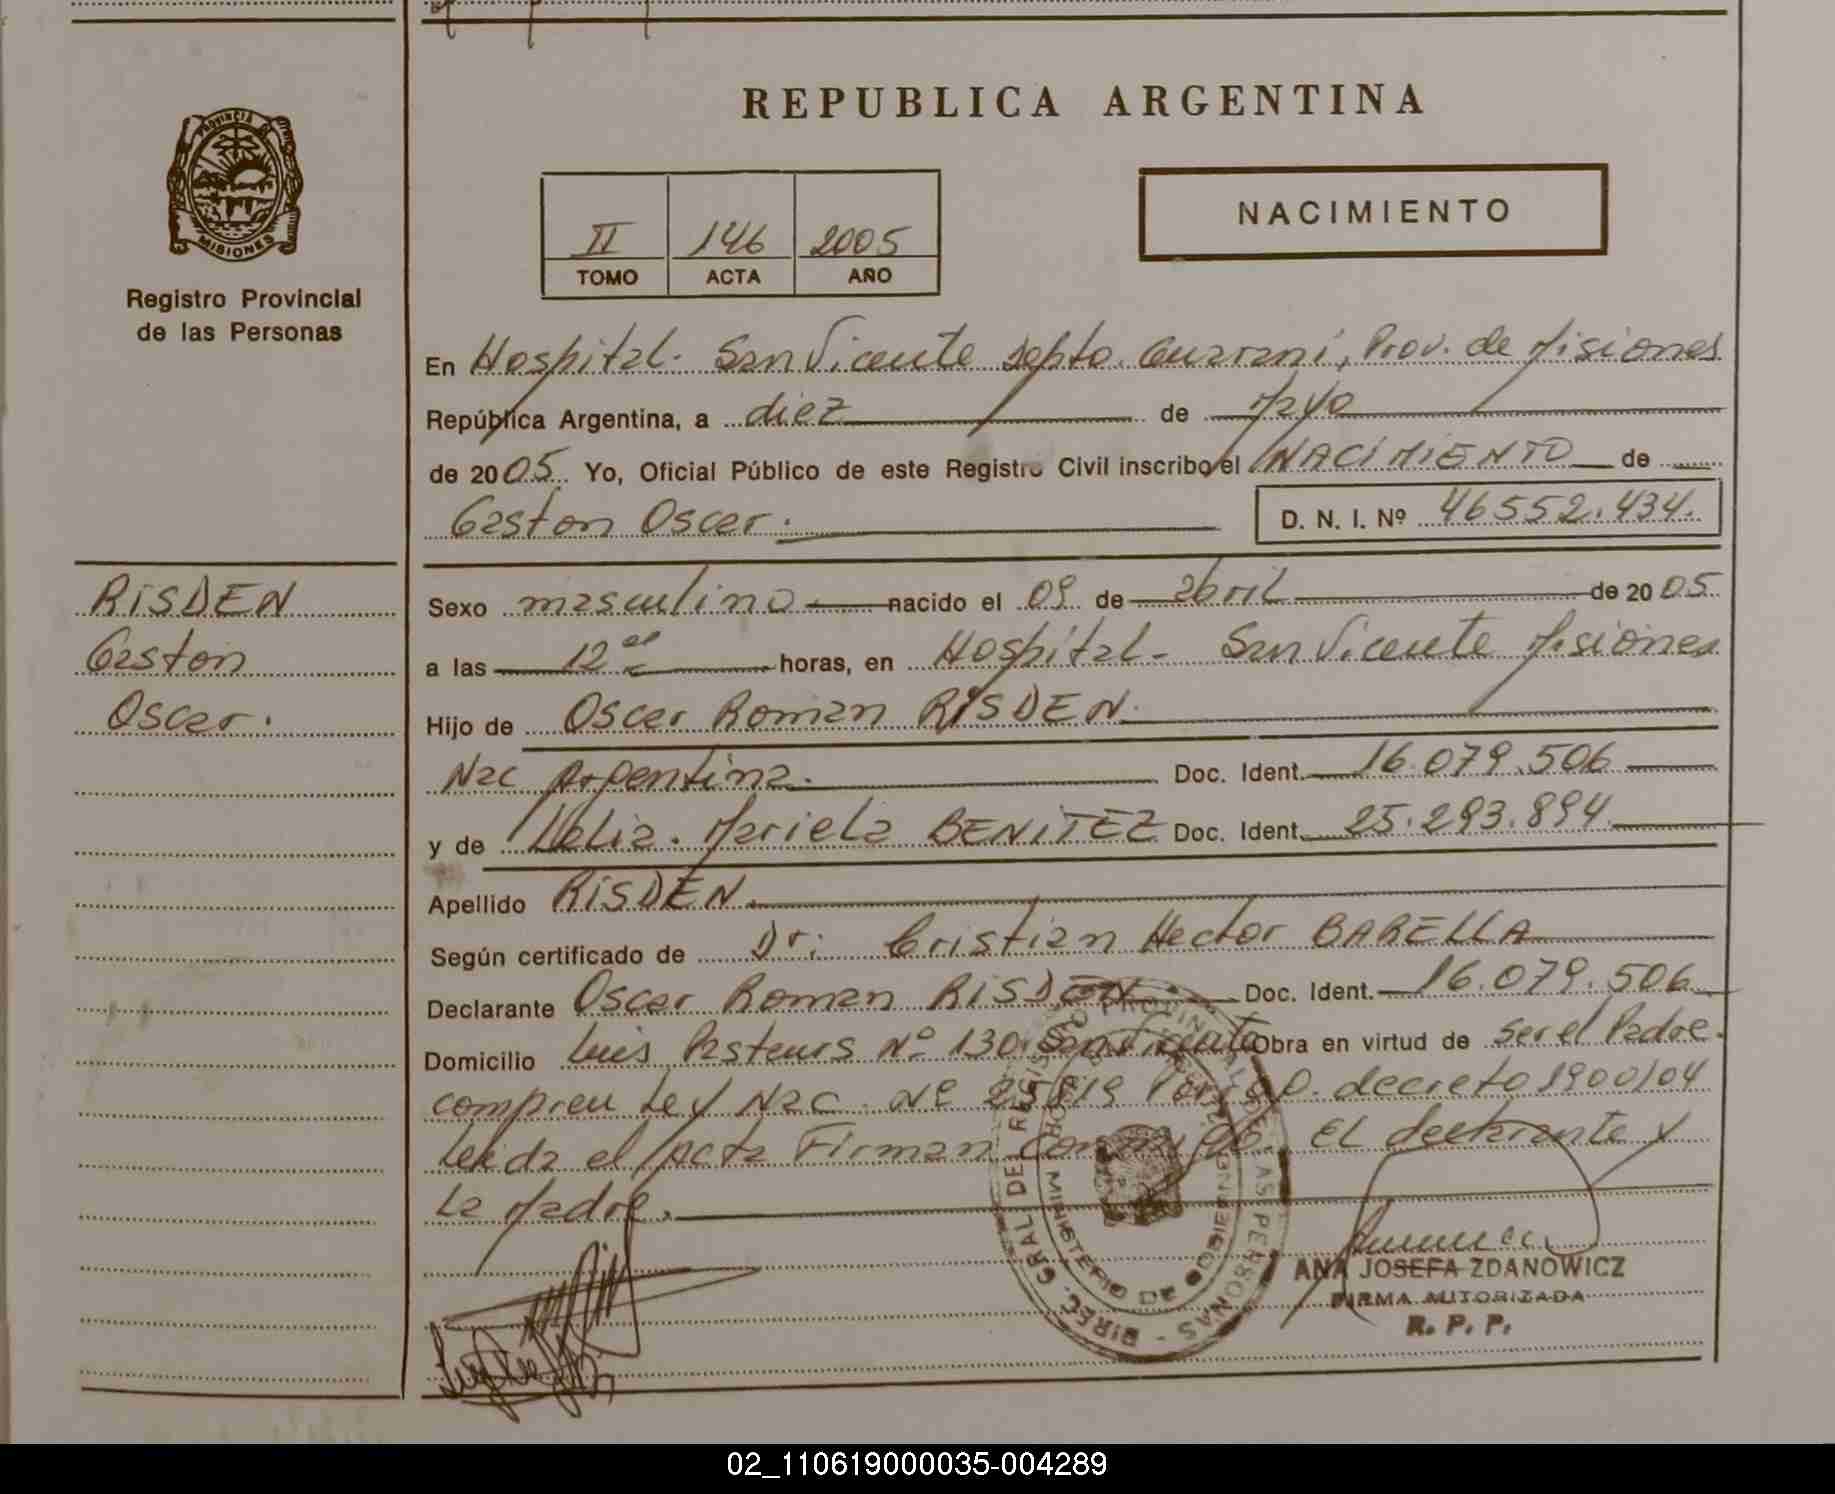 REPUBLICA ARGENTINA
PROVINCIA DE
MISIONES
Registro Provincial
de las Personas
II 146 2005
TOMO ACTA AÑO
NACIMIENTO
En Hospital. San Vicente Depto. Guarani, Prov. de Misiones
República Argentina, a diez de Mayo
de 2005. Yo, Oficial Público de este Registro Civil inscribo el NACIMIENTO de
Gaston Oscar.
D. N. I. Nº 46552.434.
RISDEN
Gaston
Oscar.
Sexo masculino nacido el 09 de abril de 2005.
a las 12 horas, en Hospital - San Vicente Misiones
Hijo de Oscar Roman RISDEN.
Nac Argentina. Doc. Ident. 16.079.506
y de Mariela BENITEZ Doc. Ident. 25.293.894.
Apellido RISDEN.
Según certificado de Dr: Cristian Hector BARELLA
Declarante Oscar Roman RISDEN. Doc. Ident. 16.079.506
Domicilio Luis Pasteurs Nº 130. San Vicente Obra en virtud de ser el Padre.
Ley Nac. Nº 25819 decreto 1900/04
Leida el Acta Firman conmigo. El declarante y
La Madre.
DIREC. GRAL DE REGISTRO PROVINCIAL DE LAS PERSONAS -
MINISTERIO DE GOBIERNO
ANA JOSEFA ZDANOWICZ
FIRMA AUTORIZADA
R. P. P.
02_110619000035-004289